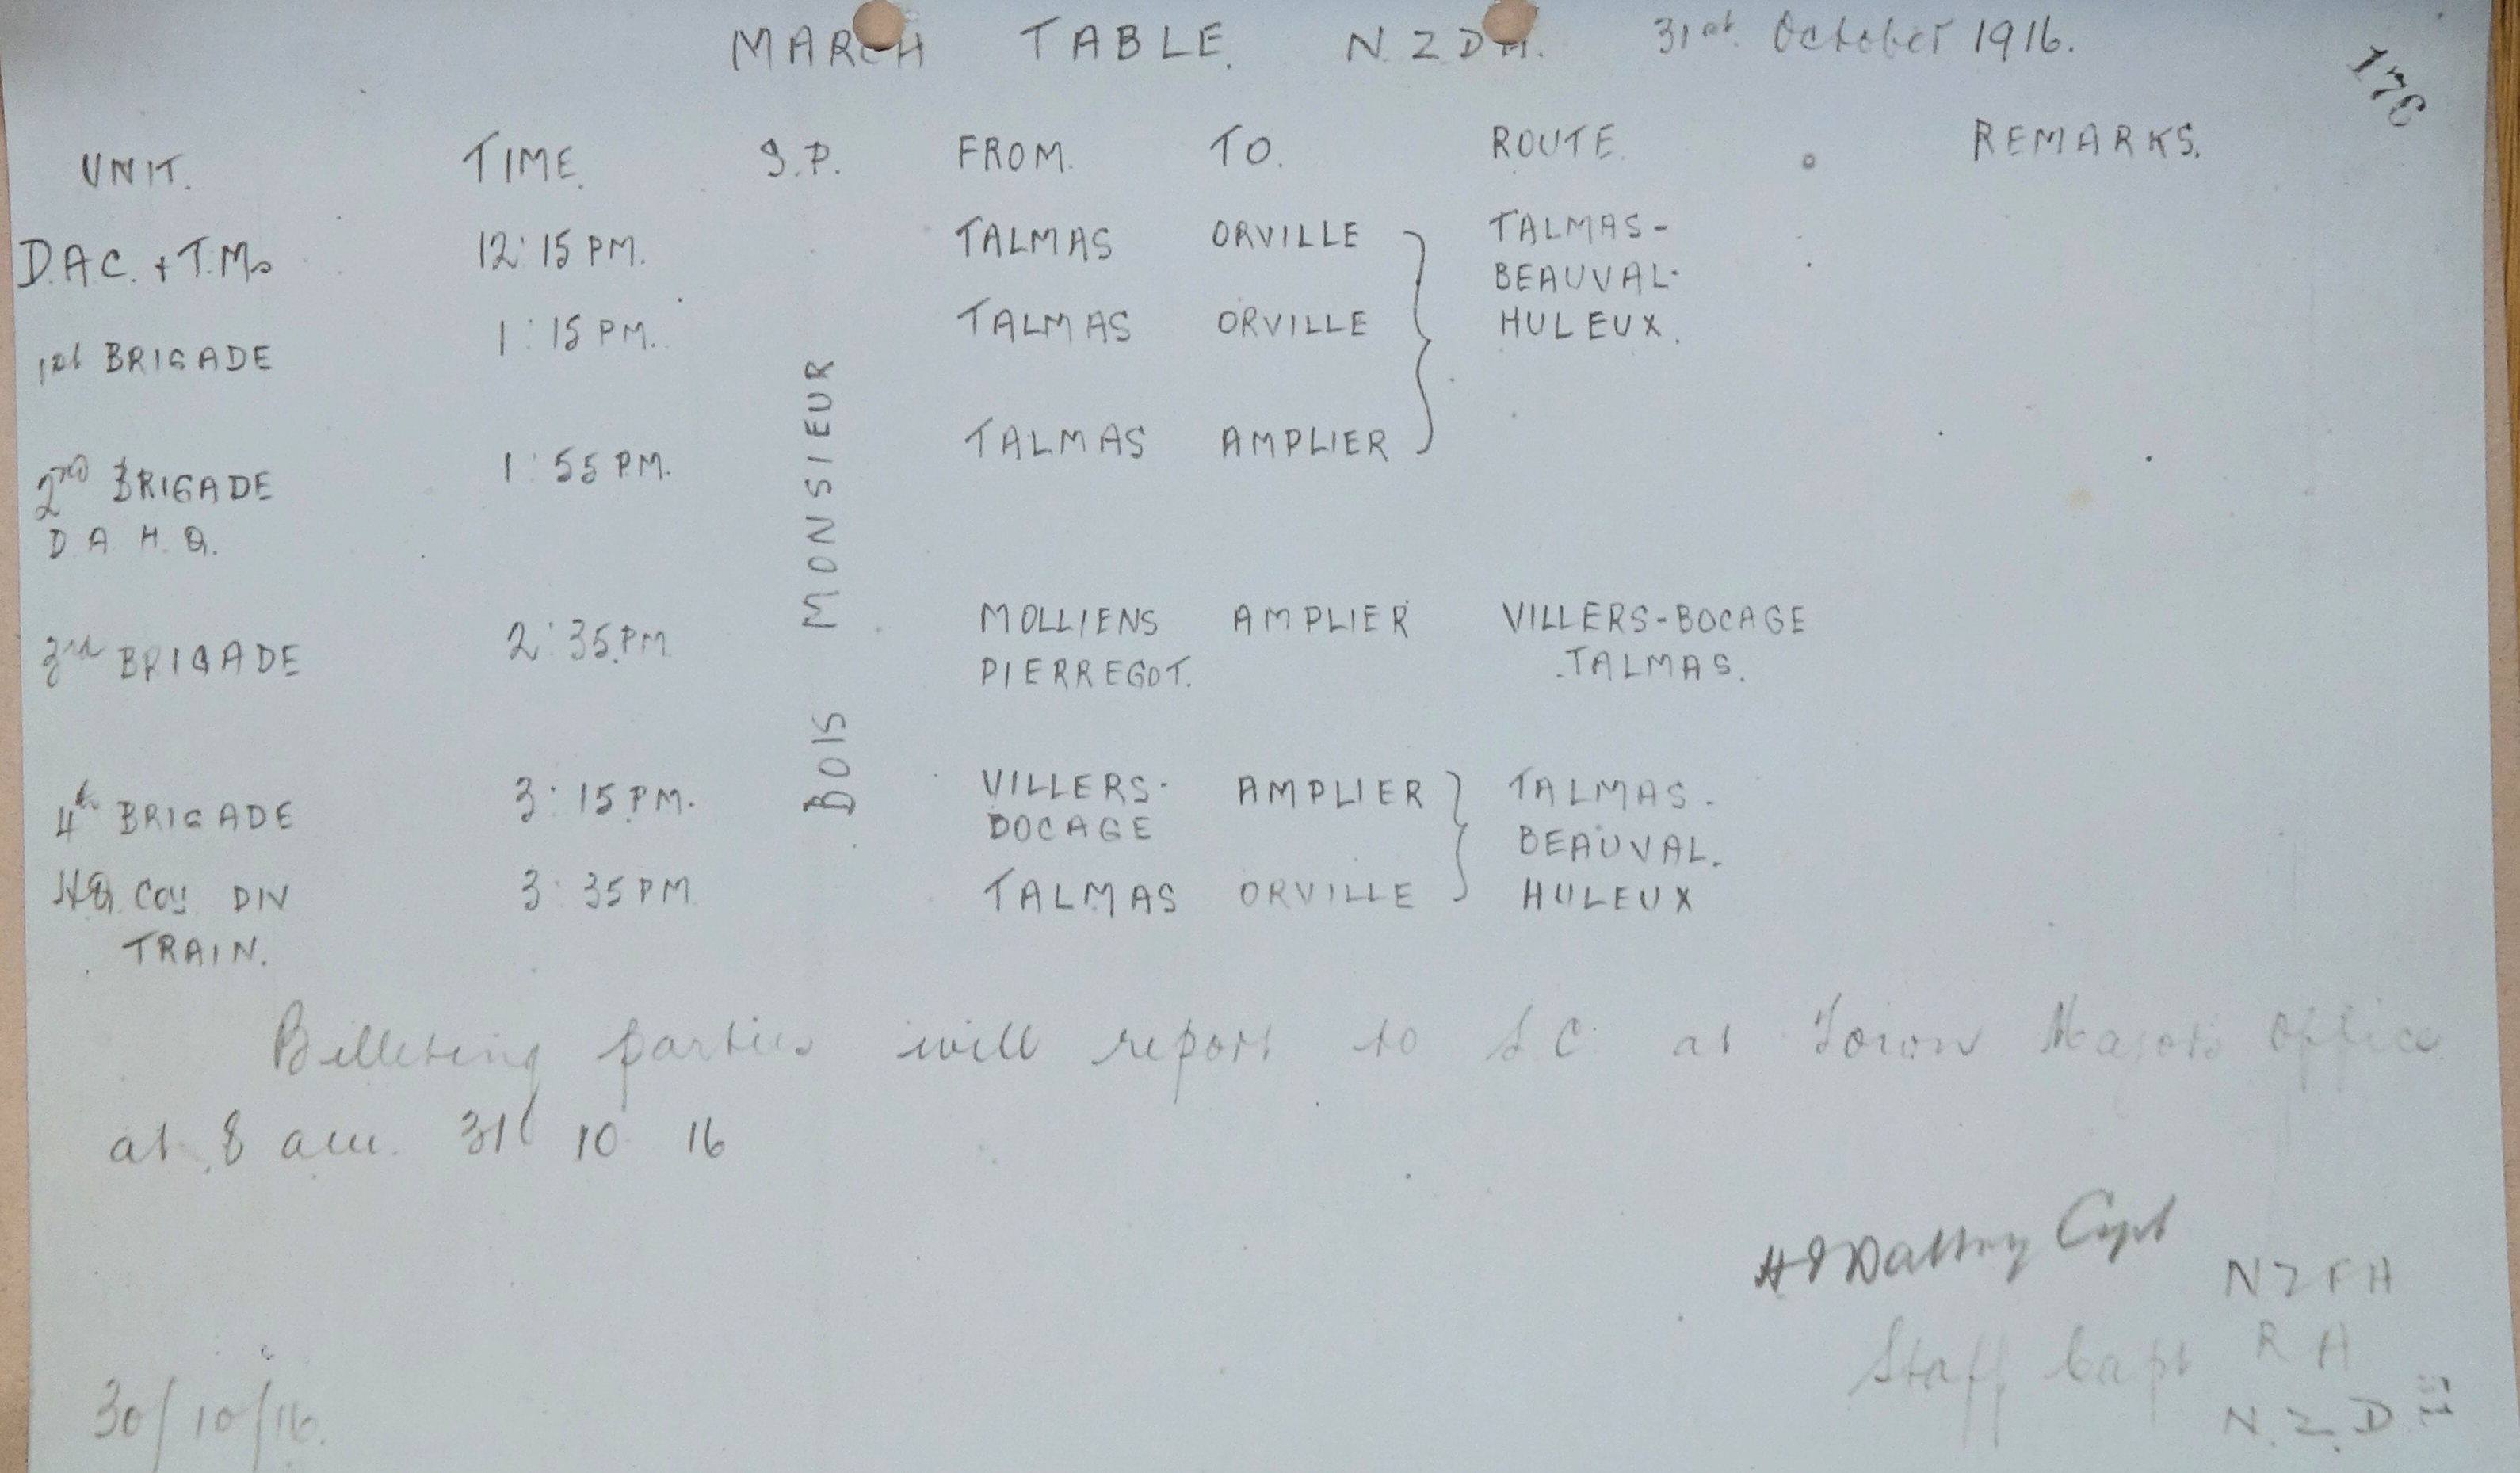 MARCH TABLE. N.Z.D.A. 31st October 1916.
178
UNIT. TIME. S.P. FROM. TO. ROUTE. REMARKS.
D.A.C. + T.Ms 12:15 PM. TALMAS ORVILLE TALMAS-
BEAUVAL-
1st BRIGADE 1:15 PM. TALMAS ORVILLE HULEUX.
2nd BRIGADE 1:55 P.M. TALMAS AMPLIER
D A H.Q.
BOIS MONSIEUR
3rd BRIGADE 2:35.P.M. MOLLIENS AMPLIER VILLERS-BOCAGE
PIERREGOT. TALMAS.
4th BRIGADE 3:15 P.M. VILLERS- AMPLIER TALMAS.
BOCAGE BEAUVAL.
HQ. COY DIV 3:35 PM TALMAS ORVILLE HULEUX
TRAIN.
Billeting parties will report to S.C. at Town Majors Office
at 8 am. 31 10 16
Capt
N Z F A
Staff Capt R A
N.Z.D
30/10/16.